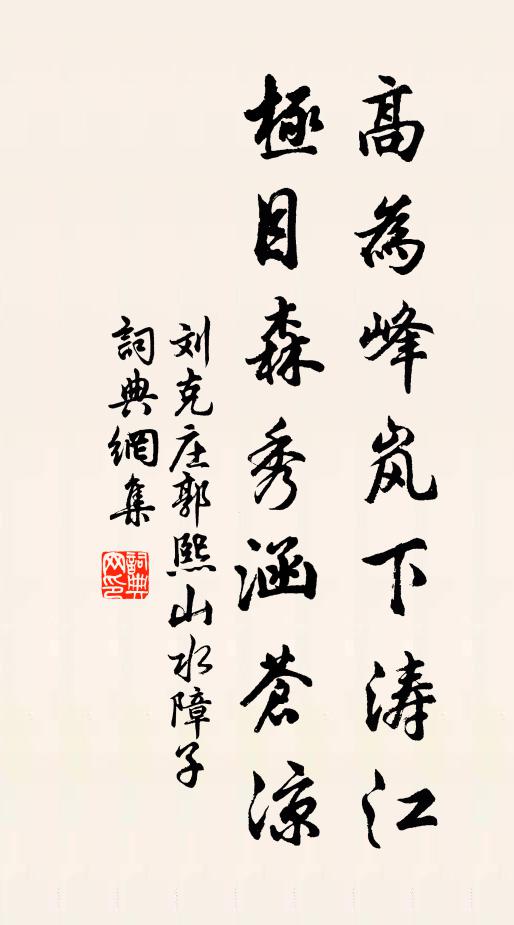 高為峰岚下涛江
極目森秀涵蒼涼
刘克庄郭熙山水障子
詞典網集
詞典
网印